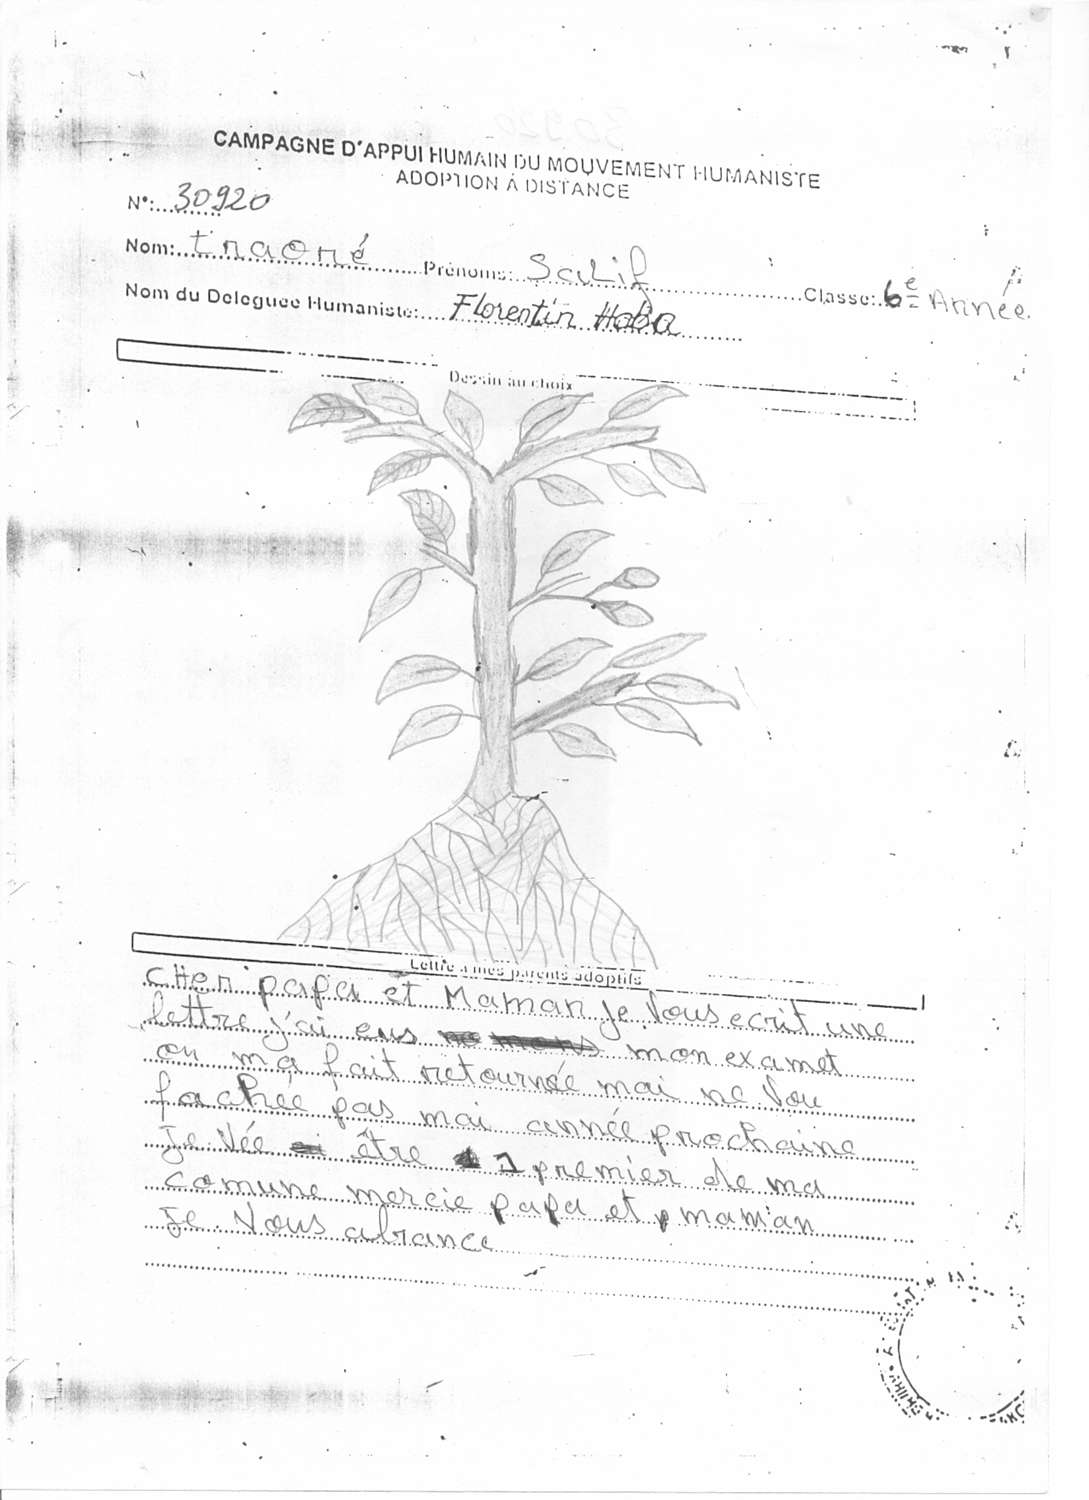 CAMPAGNE D'APPUI HUMAIN DU MOUVEMENT HUMANISTE
ADOPTION À DISTANCE
N°: 30920
Nom: traoré Prénoms: Salif Classe: 6e Année
Nom du Deleguee Humaniste: Florentin Haba
Dessin au choix
Lettre a mes parents adoptifs
cHer papa et Maman je Vous ecrit une
lettre j'ai eus mon examet
on m'a fait retournée mai ne Vou
fachée pas mai année prochaine
Je Vée être 1 premier de ma
comune mercie papa et maman
Je Vous abrance